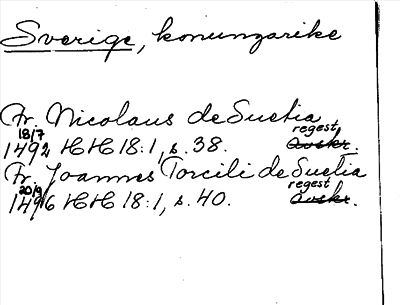 Sverige, konungarike
Fr. Nicolaus de Suetia
18/7 regest
1492 HH 18:1, s. 38. Avskr.
Fr. Joannes Torcili de Suetia
20/9 regest
1496 HH 18:1, s. 40. Avskr.